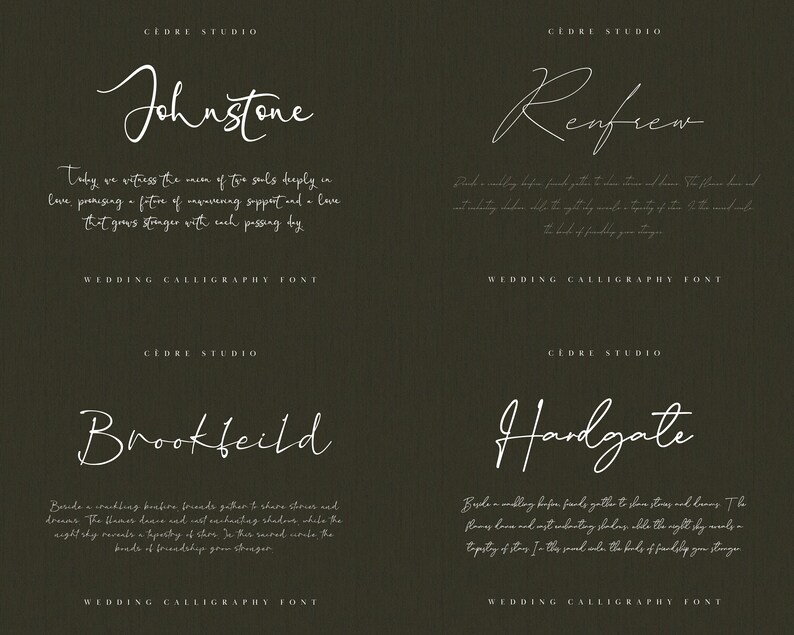 CÈDRE STUDIO
Johnstone
Today we witness the union of two souls deeply in
love, promising a future of unwavering support and a love
that grows stronger with each passing day
WEDDING CALLIGRAPHY FONT
CÈDRE STUDIO
Renfrew
Beside a crackling bonfire, friends gather to share stories and dreams. The flames dance and
cast enchanting shadows, while the night sky reveals a tapestry of stars. In this sacred circle,
the bonds of friendship grow stronger.
WEDDING CALLIGRAPHY FONT
CÈDRE STUDIO
Brookfeild
Beside a crackling bonfire, friends gather to share stories and
dreams. The flames dance and cast enchanting shadows, while the
night sky reveals a tapestry of stars. In this sacred circle, the
bonds of friendship grow stronger.
WEDDING CALLIGRAPHY FONT
CÈDRE STUDIO
Hardgate
Beside a crackling bonfire, friends gather to share stories and dreams. The
flames dance and cast enchanting shadows, while the night sky reveals a
tapestry of stars. In this sacred circle, the bonds of friendship grow stronger.
WEDDING CALLIGRAPHY FONT